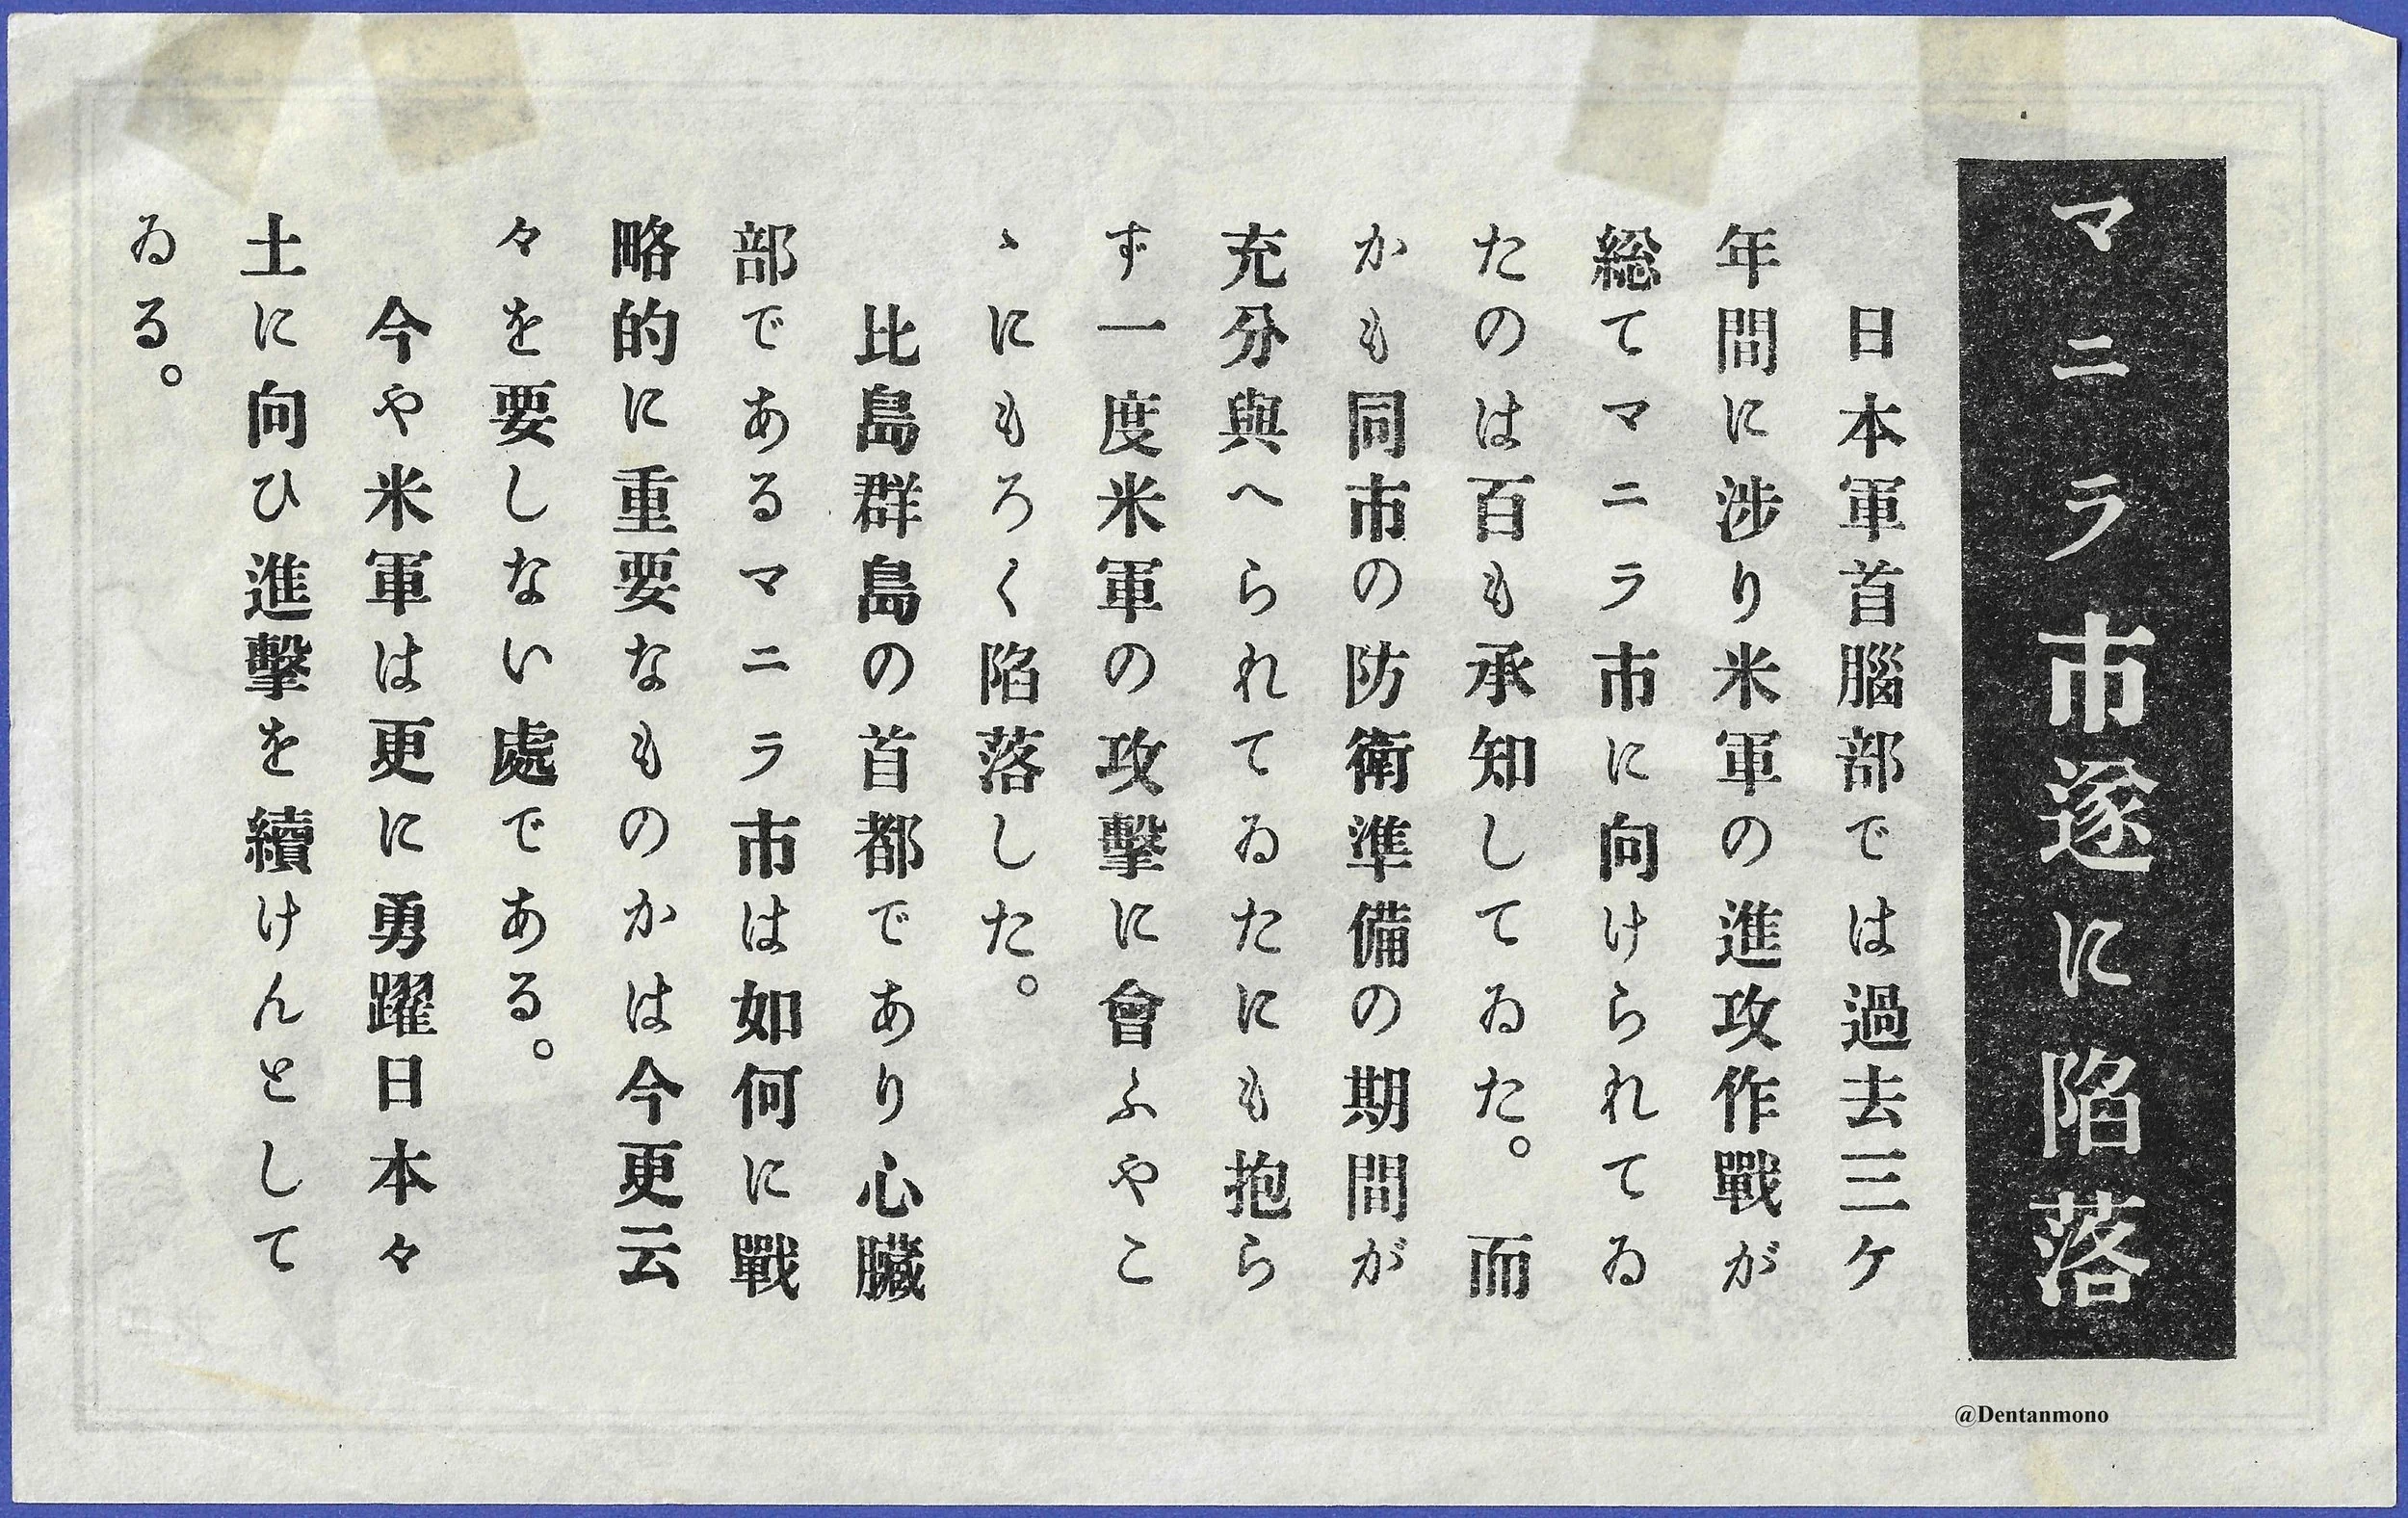 マニラ市遂に陥落
日本軍首腦部では過去三ケ
年間に渉り米軍の進攻作戰が
総てマニラ市に向けられてゐ
たのは百も承知してゐた。而
かも同市の防衛準備の期間が
充分與へられてゐたにも抱ら
ず一度米軍の攻擊に會ふやこ
ゝにもろく陥落した。
比島群島の首都であり心臓
部であるマニラ市は如何に戰
略的に重要なものかは今更云
々を要しない處である。
今や米軍は更に勇躍日本々
土に向ひ進擊を續けんとして
ゐる。
@Dentanmono